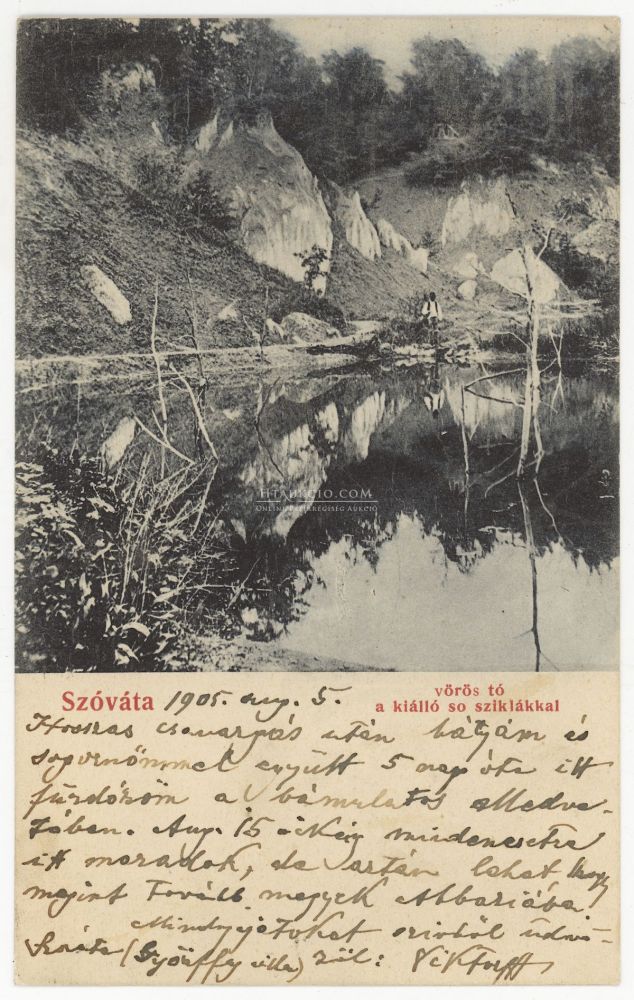 HTAUKCIO.COM
ONLINE PAPÍRRÉGISÉG AUKCIÓ
Szováta 1905. aug. 5.
vörös tó
a kiálló so sziklákkal
Hosszas csavargás után bátyám és
sogornőmmel együtt 5 nap óta itt
fürdőzöm a bámulatos Medve-
tóban. Aug. 15-ikéig mindenesetre
itt maradok, de aztán lehet hogy
megint tovább megyek Abbaziába.
Mindnyájotokat szivből üdvö-
Szováta (Györffy villa) zöl: Viktor